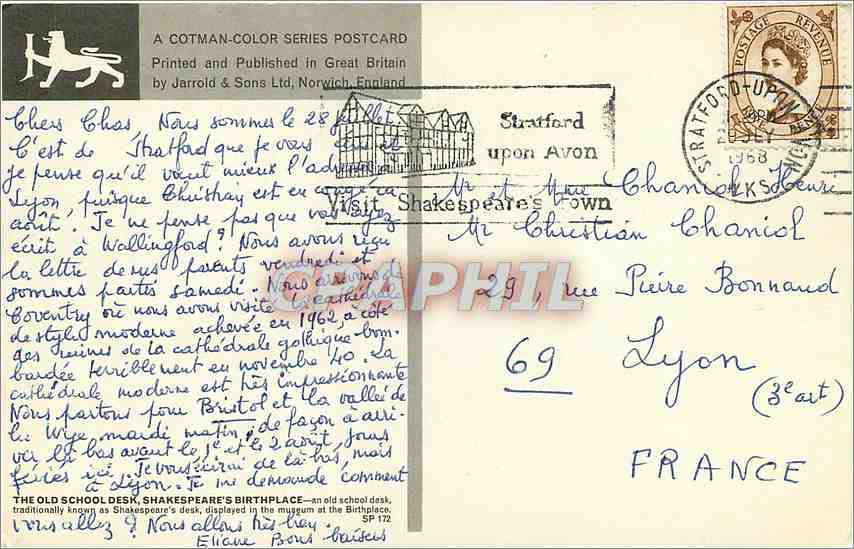 A COTMAN-COLOR SERIES POSTCARD
Printed and Published in Great Britain
by Jarrold & Sons Ltd, Norwich, England
Chers Chas, Nous sommes le 28 juillet
C'est de Stratford que je vous
je pense qu'il vaut mieux
Lyon, puisque est en congé en
août. Je ne pense pas que vous ayez
écrit à Wallingford? Nous avons reçu
la lettre de mes parents vendredi et
sommes partis samedi. Nous arrivons de
Coventry où nous avons visité la cathédrale
de style moderne achevée en 1962, à côté
des ruines de la cathédrale gothique bom-
bardée terriblement en novembre 40. La
cathédrale moderne est très impressionnante
Nous partons pour Bristol et la vallée de
la Wye mardi matin, de façon à arri-
ver là bas avant le 1e et le 2 août, jours
fériés ici. Je vous écrirai de là-bas, mais
à Lyon. Je me demande comment
THE OLD SCHOOL DESK, SHAKESPEARE'S BIRTHPLACE—an old school desk,
traditionally known as Shakespeare's desk, displayed in the museum at the Birthplace.
SP 172
vous allez? Nous allons très bien.
Eliane Bons baisers
Stratford
upon Avon
Visit Shakespeare's town
POSTAGE REVENUE
STRATFORD-UPON-AVON
1968
Mr et Mme Chaniol Henri
Mr Christian Chaniol
29, rue Pierre Bonnaud
69 Lyon
(3e art)
FRANCE
CPAPHIL